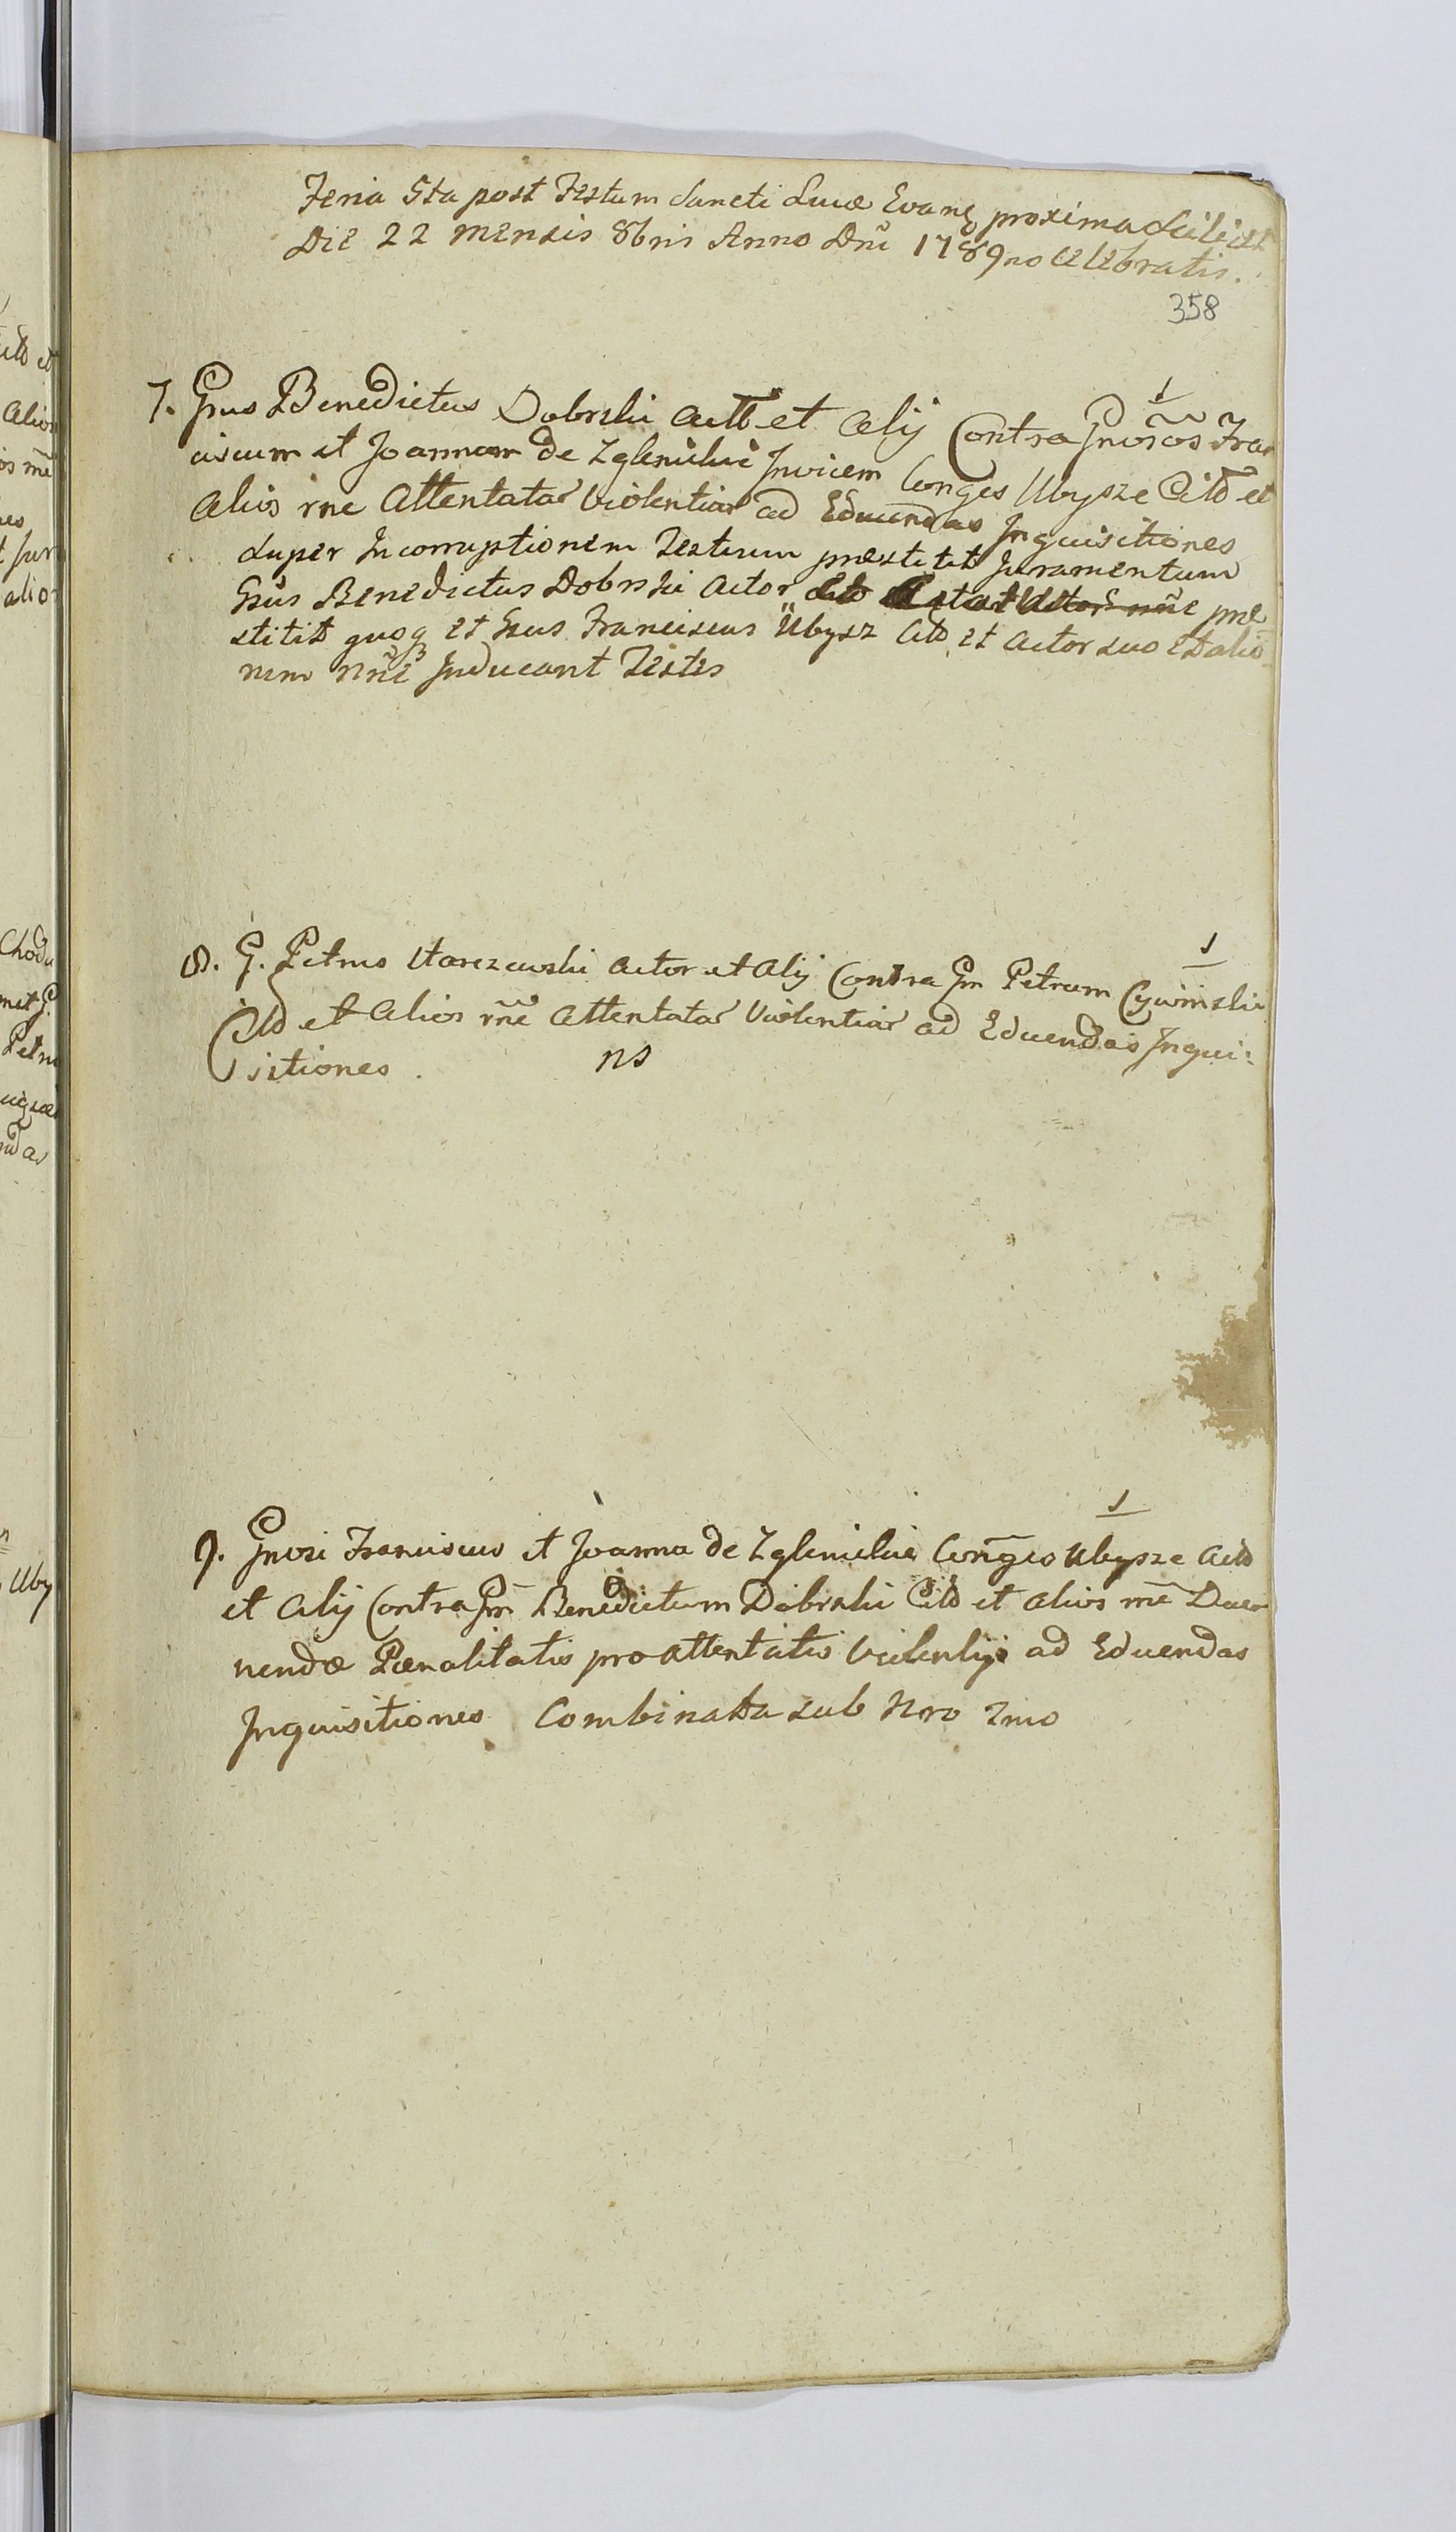 Feria 5ta post Festum Sancti Lucæ Evang proxima Scilicet
Die 22 Mensis 8bris Anno Dni 1789no Celebratis.
358
1
7. Gnus Benedictus Dobrski Actt et Alij Contra Gnosos Fran
ciscum et Joannam de Zglenickie Invicem Conges Ubysze Citt et
Alios rne Attentatar Violentiar ad Educendas Inquisitiones
Super Incorruptionem Testium prestitit Juramentum
Gsus Benedictus Dobrski Actor pre
stitit quoq et Gsus Franciscus Ubysz Citt et Actor suo et alio
nim nne Inducant Testes
1
8. G. Petrus Starczewski Actor et Alij Contra Gm Petrum Cywinski
Citt et Alios rne Attentatar Violentiar ad Educendas Inqui:
sitiones. ns
1
9. Gnosi Franciscus et Joanna de Zglenickie Conges Ubysze Actt
et Alij Contra Gm Benedictum Dobrski Citt et Alios rne
nendæ Pænalitatis pro Attentatis Violentijs ad Educendas
Inquisitiones Combinatta sub Nro
Alios
Uby